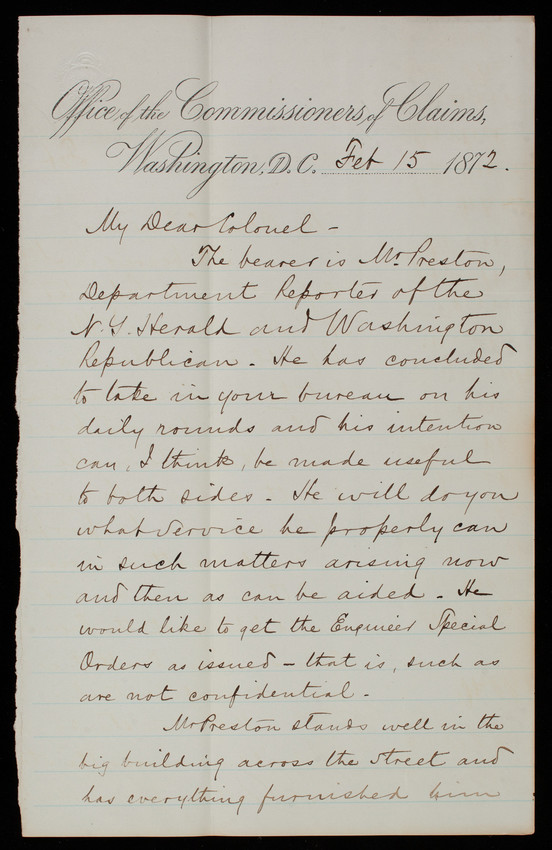 Office of the Commissioners of Claims,
Washington, D.C. Feb 15 1872.
My Dear Colonel -
The bearer is Mr. Preston,
Department Reporter of the
N.Y. Herald and Washington
Republican. He has concluded
to take in your bureau on his
daily rounds and his intention
can, I think, be made useful
to both sides. He will do you
what service he properly can
in such matters arising now
and then as can be aided. He
would like to get the Engineer Special
Orders as issued - that is, such as
are not confidential.
Mr Preston stands well in the
big building across the street and
has everything furnished him